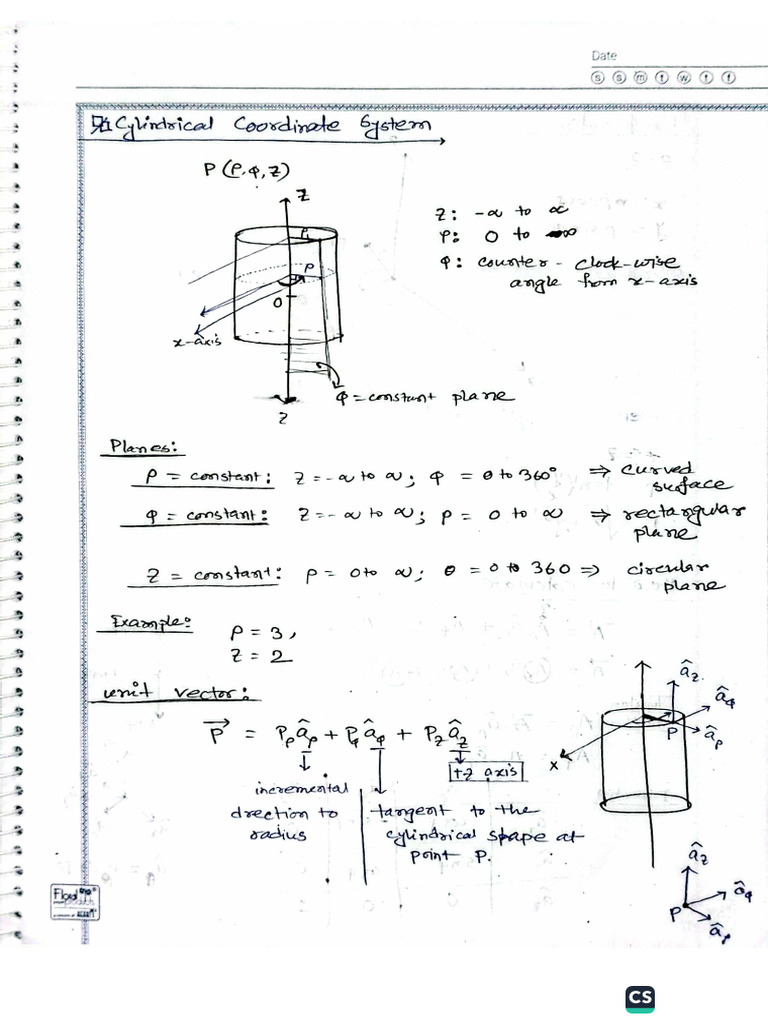 Date
S S M T W T F
Cylindrical Coordinate System
P (ρ, φ, Z)
Z
Z: -∞ to ∞
ρ: 0 to ∞
φ: counter - clock-wise
angle from x-axis
ρ
ρ
O
x-axis
φ = constant plane
Z
Planes:
ρ = constant: Z = -∞ to ∞; φ = 0 to 360° ⇒ curved
surface
φ = constant: Z = -∞ to ∞; ρ = 0 to ∞ ⇒ rectangular
plane
Z = constant: ρ = 0 to ∞; θ = 0 to 360 ⇒ circular
plane
Example:
ρ = 3,
Z = 2
unit vector:
P⃗ = Pρ âρ + Pφ âφ + Pz âz
+z axis
incremental
drection to
radius
tangent to the
cylindrical spape at
point P.
âz
âφ
P
âρ
x
âz
âφ
P
âρ
CS